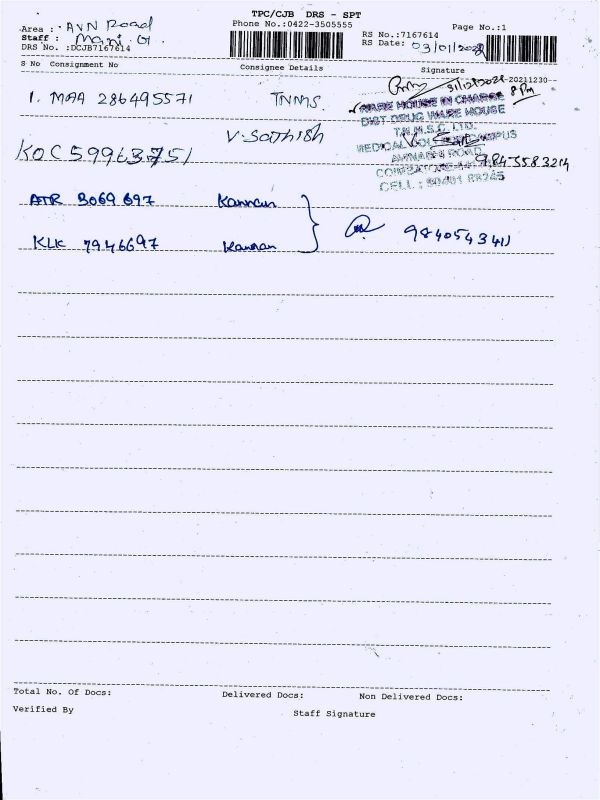 TPC/CJB DRS - SPT
Phone No.:0422-3505555
Page No.:1
Area : AVN Road
Staff : Mani. G.
DRS No. :DCJB7167614
RS No.:7167614
RS Date: 03/01/2022
S No Consignment No Consignee Details Signature
31/12/2021 -20211230--
8 PM
1. MAA 286495571 TNMS.
WARE HOUSE IN CHARGE
DIST. DRUG WARE HOUSE
T.N.M.S.C. LTD.
V. Sathish
AVINASHI ROAD
KOC59963751
9843583214
ATR 3069697 Kannan
KLK 7946697 Kannan
Total No. Of Docs: Delivered Docs: Non Delivered Docs:
Verified By Staff Signature